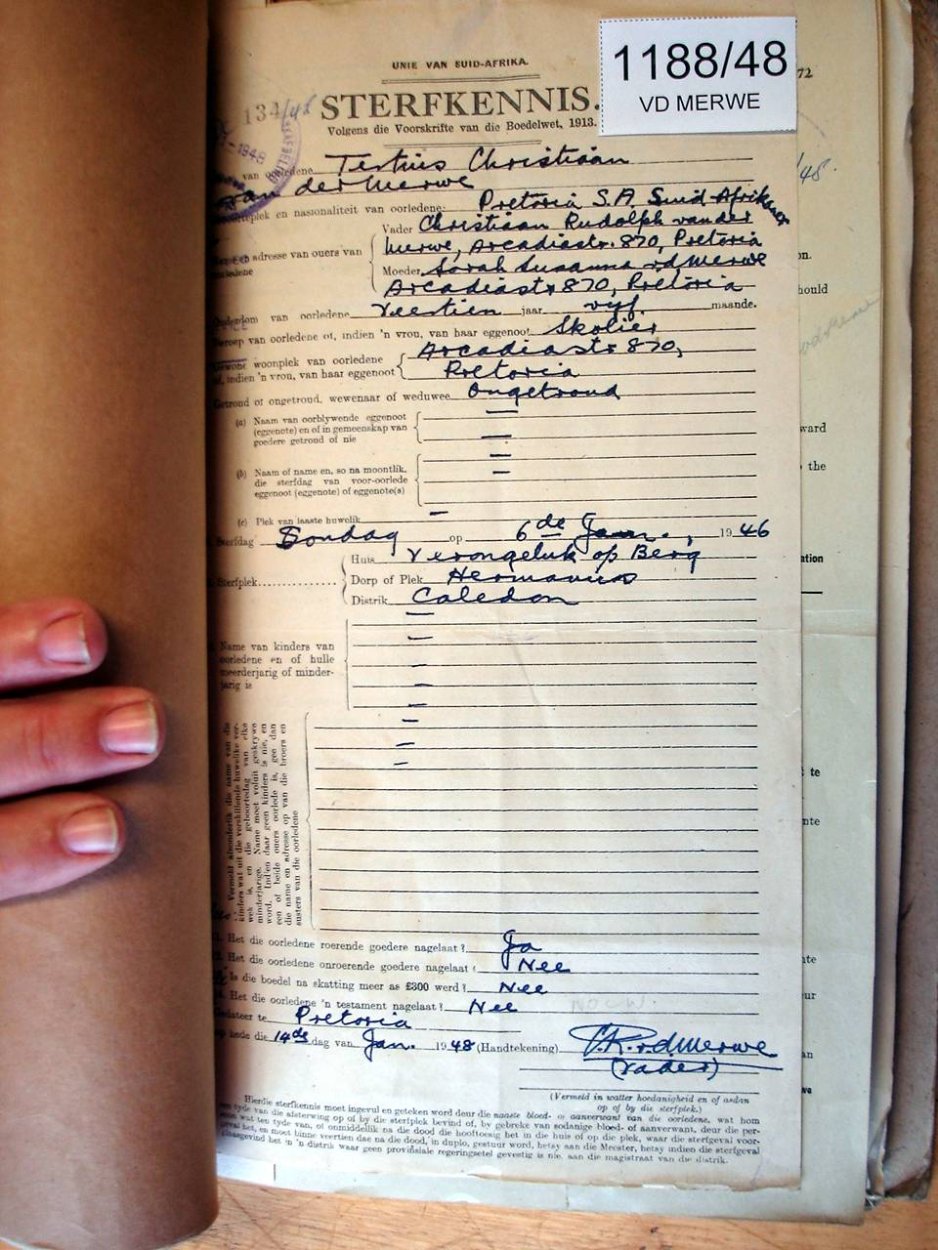 UNIE VAN SUID-AFRIKA.
1188/48
VD MERWE
72
134/48
STERFKENNIS.
Volgens die Voorskrifte van die Boedelwet, 1913.
van oorledene Tertius Christiaan
van der Merwe
/48.
plek en nasionaliteit van oorledene: Pretoria S.A. Suid-Afrikaner
Vader Christiaan Rudolph van der
adresse van ouers van Merwe, Arcadiastr. 870, Pretoria
oorledene
Moeder Sarah Susanna vd Merwe
Arcadiastr 870, Pretoria
hould
van oorledene Veertien jaar vyf maande.
van oorledene of, indien 'n vrou, van haar eggenoot Skolier
woonplek van oorledene Arcadiastr 870,
of, indien 'n vrou, van haar eggenoot Pretoria
Getroud of ongetroud, wewenaar of weduwee Ongetroud
(a) Naam van oorblywende eggenoot
(eggenote) en of in gemeenskap van
goedere getroud of nie
ward
(b) Naam of name en, so na moontlik,
die sterfdag van voor-oorlede
eggenoot (eggenote) of eggenote(s)
the
(c) Plek van laaste huwelik
Sterfdag Sondag op 6de Jan., 1946
Huis Verongeluk op Berg
Sterfplek Dorp of Plek Hermanus
Distrik Caledon
ation
Name van kinders van
oorledene en of hulle
meerderjarig of minder-
jarig is
te
Vermeld afsonderlik die name van die
kinders wat uit die verskillende huwelike ver-
wek is, en die geboortedag van elke
minderjarige. Name moet voluit geskrywe
word. Indien daar geen kinders is nie, en
een of beide ouers oorlede is, gee dan
die name en adresse op van die broers en
susters van die oorledene
Het die oorledene roerende goedere nagelaat? Ja
Het die oorledene onroerende goedere nagelaat? Nee
Is die boedel na skatting meer as £300 werd? Nee
Het die oorledene 'n testament nagelaat? Nee
Gedateer te Pretoria
op hede die 14de dag van Jan. 1948 (Handtekening) C.R. v.d Merwe
(Vader)
(Vermeld in watter hoedanigheid en of anders
op of by die sterfplek.)
Hierdie sterfkennis moet ingevul en geteken word deur die naaste bloed- of aanverwant van die oorledene, wat hom
ten tyde van die afsterwing op of by die sterfplek bevind of, by gebreke van sodanige bloed- of aanverwant, deur die per-
soon wat ten tyde van, of onmiddellik na die dood die hooftoesig het in die huis of op die plek, waar die sterfgeval voor-
geval het, en moet binne veertien dae na die dood, in duplo, gestuur word, hetsy aan die Meester, hetsy indien die sterfgeval
plaasgevind het in 'n distrik waar geen provinsiale regeringsetel gevestig is nie, aan die magistraat van die distrik.